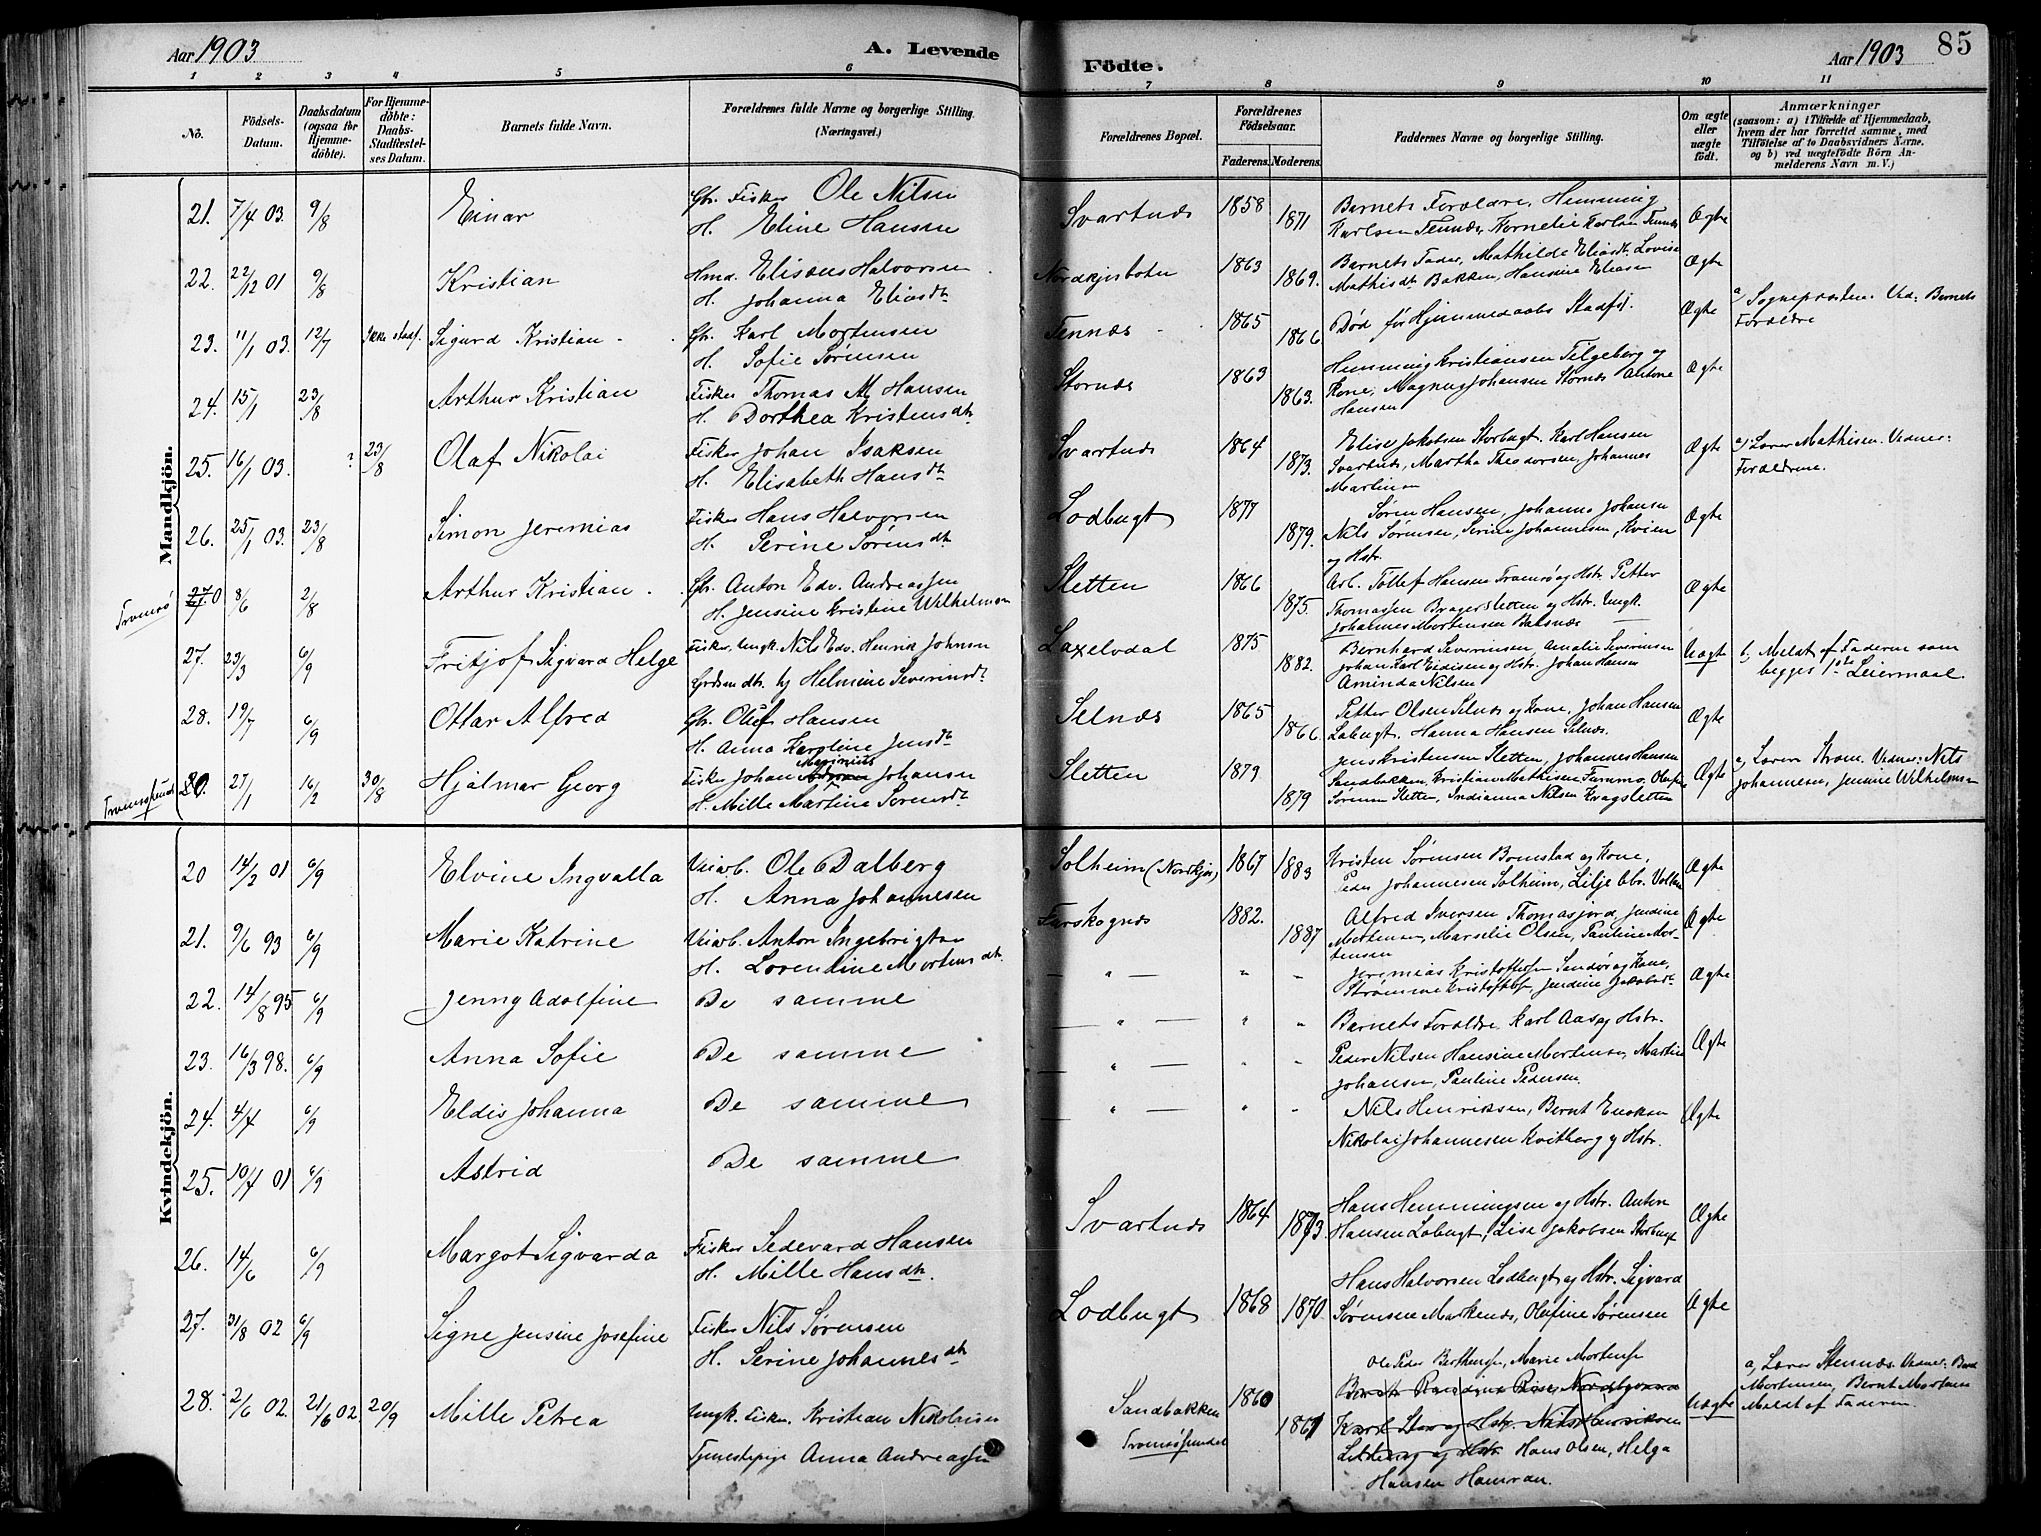 Aar 1903
A. Levende
Födte.
Aar 1903
85
1 2 3 4 5 6 7 8 9 10 11
No.
Födsels-
Datum.
Daabsdatum
(ogsaa for
Hjemme-
döbte).
For Hjemme-
döbte:
Daabs-
Stadfæstel-
ses Datum.
Barnets fulde Navn.
Forældrenes fulde Navne og borgerlige Stilling.
(Næringsvei.)
Forældrenes Bopæl.
Forældrenes
Födselsaar.
Faderens. Moderens.
Faddernes Navne og borgerlige Stilling.
Om ægte
eller
uægte
födt.
Anmærkninger
(saasom: a) i Tilfælde af Hjemmedaab,
hvem der har forrettet samme, med
Tilföielse af to Daabsvidners Navne,
og b) ved uægtefödte Börn An-
melderens Navn m. V.)
Mandkjön.
21. 7/4 03. 9/8 Einar Gbr. Fisker Ole Nilsen
H. Eline Hansen
Svartnæs 1858 1871
Barnets Forældre, Hemming
Karlsen Tennæs, Kornelie Karlsen Tennæs
Ægte
22. 22/12 01 9/8 Kristian Hmd. Elisæus Halvorsen
H. Johanna Eliasdt.
Nordkjosboten 1863 1869.
Barnets Fader, Mathilde Eliasdt. Lovise
Mathisdt. Bakken, Hansine Eliasen
Ægte
23. 11/1 03. 12/7 Ikke stadf. Sigurd Kristian Gbr. Karl Mortensen
H. Sofie Sørensen
Tennæs 1865 1866
Død før Hjemmedaabs Stadf.
Ægte
a/ Sognepræsten. Vid: Barnets
Forældre
24. 15/1 23/8 Arthur Kristian Fisker Thomas M. Hansen
H. Dorthea Kristensdt.
Stornæs 1863 1863.
Hemming Kristiansen Telgeberg og
Kone, Magnus Johansen Stornæs Antone
Hansen
Ægte
25. 16/1 03. ? 23/8 Olaf Nikolai Fisker Johan Isaksen
H. Elisabeth Hansdt.
Svartnæs 1864 1873.
Elise Jakobsen Storbugt. Karl Hansen
Svartnæs, Martha Theodorsen, Johannes
Martinsen
Ægte
a/ Lærer Mathisen. Vidner:
Forældrene.
26. 25/1 03. 23/8 Simon Jeremias Fisker Hans Halvorsen
H. Serine Sørensdt.
Lodbugt 1877 1879.
Søren Hansen, Johanna Johansen
Nils Sørensen, Serine Johannesen, Kvien
og Hstr.
Ægte
Tromsø
27.0 8/6 2/8 Arthur Kristian Gbr. Anton Edv. Andreassen
H. Jensine Kristine Wilhelmsen
Sletten 1866 1875.
Arb. Tollef Hansen Tromsø og Hstr. Petter
Thomassen Kragesletten og Hstr. Ungk.
Johannes Mortensen Balsnæs
Ægte
27. 23/3 6/9 Fritjof Sigvard Helge Fisker, Ungk. Nils Edv. Henrik Johnsen
Grdsmdtr. Helmine Severinsdt.
Laxelvdal 1875 1882.
Bernhard Severinsen, Amalie Severinsen
Johan Karl Eidisen og Hstr. Johan Hansen
Aminda Nilsen
Uægte
b, Meldt af Faderen som
begges 1ste Leiermaal.
28. 19/7 6/9 Ottar Alfred Gbr. Oluf Hansen
H. Anna Karoline Jensdt.
Selnæs 1865 1866.
Petter Olsen Selnæs og Kone, Johan Hansen
Lobugt. Hanna Hansen Selnæs.
Ægte
Tromsøsund
80. 27/1 16/2 30/8 Hjalmar Georg Fisker Johan Johansen
H. Mille Martine Sørensdt.
Sletten 1879 1879
Jens Kristensen Sletten, Johannes Hansen
Sandbakken, Kristian Mathisen Formo, Olufine
Sørensen Sletten, Indianna Nilsen Kragsletten
Ægte
a, Lærer Strøm. Vidner: Nils
Johannesen, Jensine Wilhelmsen
Kvindekjön.
20 14/2 01 6/9 Elvine Ingvalla Veiarb. Ole Dalberg
H. Anna Johannesen
Solheim (Nordkjos) 1867 1883
Kristen Sørensen Bomstad og Kone,
Peder Johannesen Solheim, Lilje Obr. Volden
Ægte
21. 9/6 93 6/9 Marie Katrine Veiarb. Anton Ingebrigtsen
H. Lorendine Mortensdt.
Furskognes 1882. 1887
Alfred Iversen Thomasjord, Jendine
Mortensen, Marselie Olsen, Pauline Mor-
tensen
Ægte
22. 14/8 95 6/9 Jenny Adolfine De samme
— " — " "
Jeremias Kristoffersen Sandør og Kone,
Strømme Kristoffers, Jendine Jakobsd.
Ægte
23. 16/3 98. 6/9 Anna Sofie De samme
— " — " "
Barnets Forældre. Karl Aas og Hstr.
Peder Nilsen Hansine Mortensen, Martin
Johansen, Pauline Pedersen.
Ægte
24. 4/4 6/9 Eldis Johanna De samme
— " — " "
Nils Henriksen, Bernt Enoksen
Nikolai Johannesen Kvitberg og Hstr.
Ægte
25. 10/4 01 6/9 Astrid De samme
— " — " "
26. 14/6 6/9 Margot Sigvarda Fisker Sedevard Hansen
H. Mille Hansdtr.
Svartnæs 1864 1873
Hans Hemmingsen og Hstr. Anton
Hansen Lobugt, Lise Jakobsen Storbugt
Ægte
27. 31/8 02 6/9 Signe Jensine Josefine Fisker Nils Sørensen
H. Serine Johannesdt.
Lodbugt 1868 1870.
Hans Halvorsen Lodbugt og Hstr. Sigvard
Sørensen Markenæs, Olufine Sørensen
Ægte
28. 2/6 02. 21/6 02 20/9 Mille Petrea Ungk. Fisker Kristian Nikolaisen
Tjenestepige Anna Andreassen
Sandbakken
Tromsøsundet
1860 1861
Ole Peder Berthensen, Marie Mortensen
Karl Stor og Hstr. Nils Henriksen
og Hstr. Hans Olsen, Helga
Hansen Hamran.
Uægte
a, Lærer Stennæs. Vidner: Bernt
Mortensen, Bernt Mortensen
Meldt af Faderen.